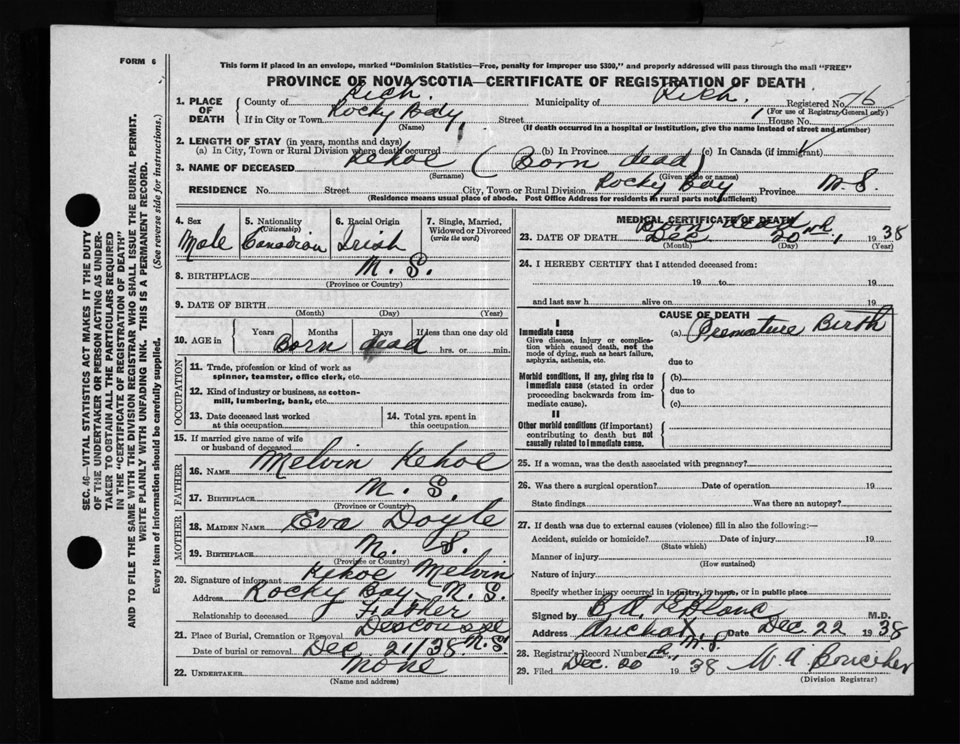 FORM 6
This form if placed in an envelope, marked "Dominion Statistics—Free, penalty for improper use $300," and properly addressed will pass through the mail "FREE"
PROVINCE OF NOVA SCOTIA—CERTIFICATE OF REGISTRATION OF DEATH
1. PLACE OF DEATH
County of Rich. Municipality of Rich. Registered No. 76
(For use of Registrar General only)
If in City or Town Rocky Bay, Street House No.
(Name) (If death occurred in a hospital or institution, give the name instead of street and number)
2. LENGTH OF STAY (in years, months and days)
(a) In City, Town or Rural Division where death occurred (b) In Province (c) In Canada (if immigrant)
3. NAME OF DECEASED Kehoe (Born dead)
(Surname) (Given name or names)
RESIDENCE No. Street City, Town or Rural Division Rocky Bay Province N.S.
(Residence means usual place of abode. Post Office Address for residents in rural parts not sufficient)
4. Sex Male
5. Nationality (Citizenship) Canadian
6. Racial Origin Irish
7. Single, Married, Widowed or Divorced (write the word)
8. BIRTHPLACE N. S.
(Province or Country)
9. DATE OF BIRTH
(Month) (Day) (Year)
10. AGE in Years Months Days If less than one day old
Born dead hrs. or min.
OCCUPATION
11. Trade, profession or kind of work as
spinner, teamster, office clerk, etc.
12. Kind of industry or business, as cotton-
mill, lumbering, bank, etc.
13. Date deceased last worked
at this occupation
14. Total yrs. spent in
this occupation
15. If married give name of wife
or husband of deceased
FATHER
16. NAME Melvin Kehoe
17. BIRTHPLACE N. S.
(Province or Country)
MOTHER
18. MAIDEN NAME Eva Doyle
19. BIRTHPLACE N. S.
(Province or Country)
20. Signature of informant Kehoe Melvin
Address Rocky Bay N. S.
Relationship to deceased Father
21. Place of Burial, Cremation or Removal Descousse N.S.
Date of burial or removal Dec. 21/38
22. UNDERTAKER None
(Name and address)
MEDICAL CERTIFICATE OF DEATH
Born dead
23. DATE OF DEATH Dec 20th, 1938
(Month) (Day) (Year)
24. I HEREBY CERTIFY that I attended deceased from:
19 to 19
and last saw h alive on 19
CAUSE OF DEATH
I
Immediate cause
Give disease, injury or complica-
tion which caused death, not the
mode of dying, such as heart failure,
asphyxia, asthenia, etc.
(a) Premature Birth
due to
Morbid conditions, if any, giving rise to
immediate cause (stated in order
proceeding backwards from im-
mediate cause).
(b)
due to
(c)
II
Other morbid conditions (if important)
contributing to death but not
causally related to immediate cause.
25. If a woman, was the death associated with pregnancy?
26. Was there a surgical operation? Date of operation 19
State findings Was there an autopsy?
27. If death was due to external causes (violence) fill in also the following:—
Accident, suicide or homicide? Date of injury 19
(State which)
Manner of injury
(How sustained)
Nature of injury
Specify whether injury occurred in industry, in home, or in public place
Signed by B A LeBlanc M.D.
Address Arichat, N.S. Date Dec. 22 1938
28. Registrar's Record Number
29. Filed Dec. 20 1938 W. A. Boucher
(Division Registrar)
SEC. 46—VITAL STATISTICS ACT MAKES IT THE DUTY
OF THE UNDERTAKER OR PERSON ACTING AS UNDER-
TAKER TO OBTAIN ALL THE PARTICULARS REQUIRED
IN THE "CERTIFICATE OF REGISTRATION OF DEATH"
AND TO FILE THE SAME WITH THE DIVISION REGISTRAR WHO SHALL ISSUE THE BURIAL PERMIT.
WRITE PLAINLY WITH UNFADING INK. THIS IS A PERMANENT RECORD.
Every item of Information should be carefully supplied. (See reverse side for instructions.)